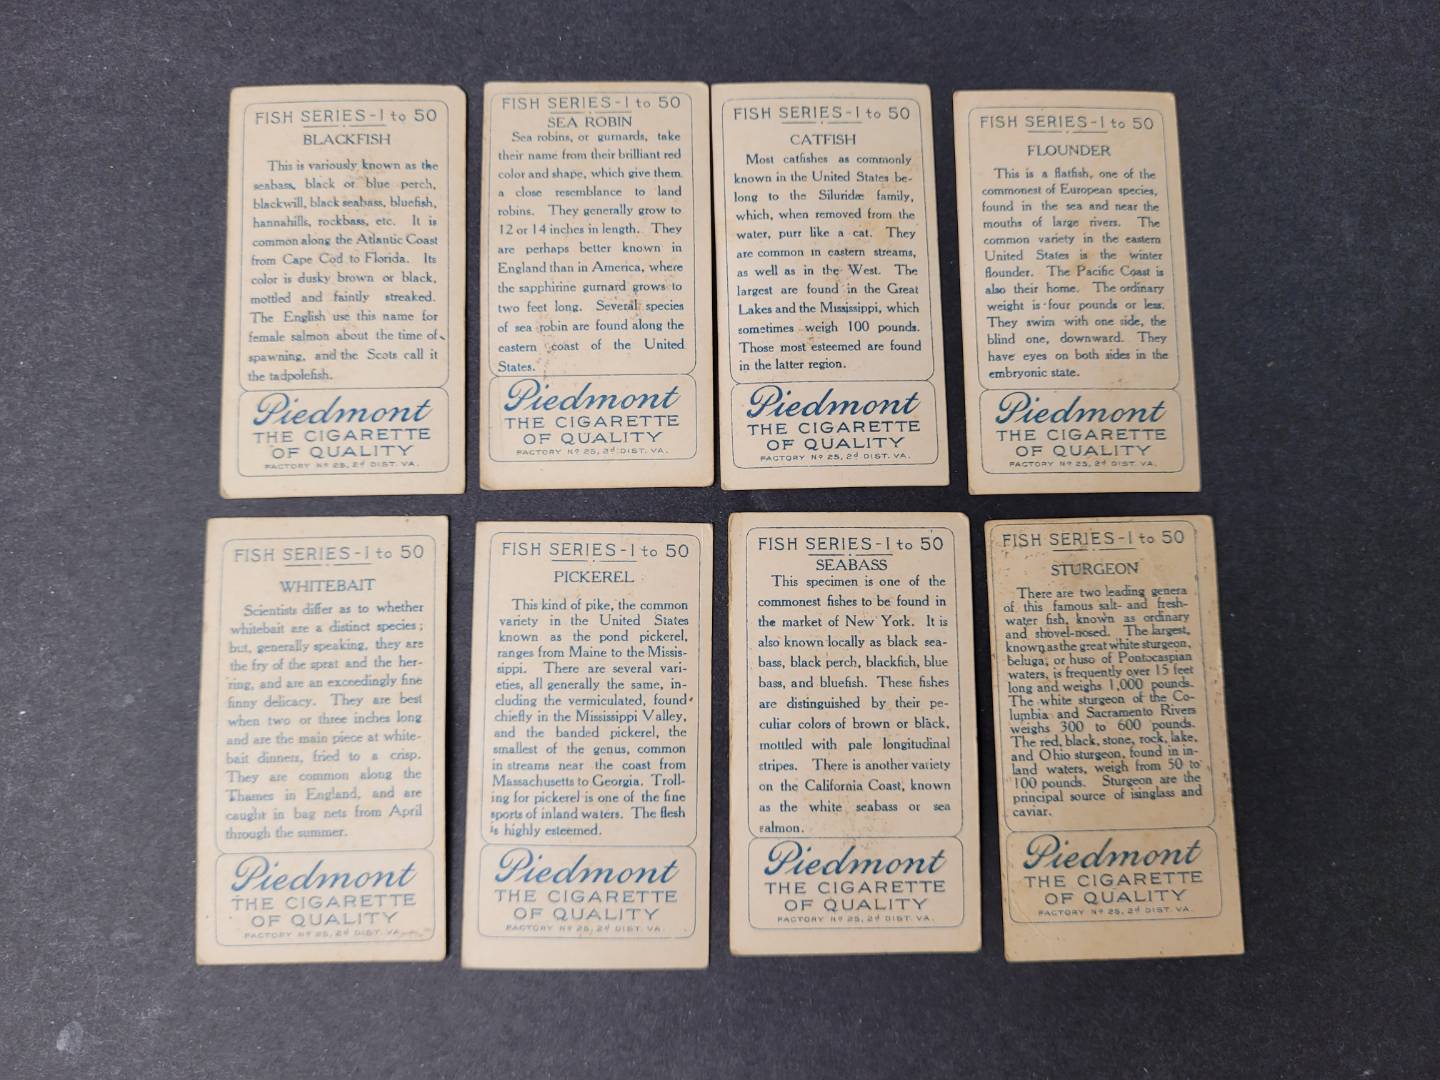 FISH SERIES-1 to 50
BLACKFISH
This is variously known as the
seabass, black or blue perch,
blackwill, black seabass, bluefish,
hannahills, rockbass, etc. It is
common along the Atlantic Coast
from Cape Cod to Florida. Its
color is dusky brown or black,
mottled and faintly streaked.
The English use this name for
female salmon about the time of
spawning, and the Scots call it
the tadpolefish.
Piedmont
THE CIGARETTE
OF QUALITY
FACTORY Nº 25, 2d DIST. VA.
FISH SERIES-1 to 50
SEA ROBIN
Sea robins, or gurnards, take
their name from their brilliant red
color and shape, which give them
a close resemblance to land
robins. They generally grow to
12 or 14 inches in length. They
are perhaps better known in
England than in America, where
the sapphirine gurnard grows to
two feet long. Several species
of sea robin are found along the
eastern coast of the United
States.
Piedmont
THE CIGARETTE
OF QUALITY
FACTORY Nº 25, 2d DIST. VA.
FISH SERIES-1 to 50
CATFISH
Most catfishes as commonly
known in the United States be-
long to the Siluridæ family,
which, when removed from the
water, purr like a cat. They
are common in eastern streams,
as well as in the West. The
largest are found in the Great
Lakes and the Mississippi, which
sometimes weigh 100 pounds.
Those most esteemed are found
in the latter region.
Piedmont
THE CIGARETTE
OF QUALITY
FACTORY Nº 25, 2d DIST. VA.
FISH SERIES-1 to 50
FLOUNDER
This is a flatfish, one of the
commonest of European species,
found in the sea and near the
mouths of large rivers. The
common variety in the eastern
United States is the winter
flounder. The Pacific Coast is
also their home. The ordinary
weight is four pounds or less.
They swim with one side, the
blind one, downward. They
have eyes on both sides in the
embryonic state.
Piedmont
THE CIGARETTE
OF QUALITY
FACTORY Nº 25, 2d DIST. VA.
FISH SERIES-1 to 50
WHITEBAIT
Scientists differ as to whether
whitebait are a distinct species;
but, generally speaking, they are
the fry of the sprat and the her-
ring, and are an exceedingly fine
finny delicacy. They are best
when two or three inches long
and are the main piece at white-
bait dinners, fried to a crisp.
They are common along the
Thames in England, and are
caught in bag nets from April
through the summer.
Piedmont
THE CIGARETTE
OF QUALITY
FACTORY Nº 25, 2d DIST. VA.
FISH SERIES-1 to 50
PICKEREL
This kind of pike, the common
variety in the United States
known as the pond pickerel,
ranges from Maine to the Missis-
sippi. There are several vari-
eties, all generally the same, in-
cluding the vermiculated, found
chiefly in the Mississippi Valley,
and the banded pickerel, the
smallest of the genus, common
in streams near the coast from
Massachusetts to Georgia. Troll-
ing for pickerel is one of the fine
sports of inland waters. The flesh
is highly esteemed.
Piedmont
THE CIGARETTE
OF QUALITY
FACTORY Nº 25, 2d DIST. VA.
FISH SERIES-1 to 50
SEABASS
This specimen is one of the
commonest fishes to be found in
the market of New York. It is
also known locally as black sea-
bass, black perch, blackfish, blue
bass, and bluefish. These fishes
are distinguished by their pe-
culiar colors of brown or black,
mottled with pale longitudinal
stripes. There is another variety
on the California Coast, known
as the white seabass or sea
salmon.
Piedmont
THE CIGARETTE
OF QUALITY
FACTORY Nº 25, 2d DIST. VA.
FISH SERIES-1 to 50
STURGEON
There are two leading genera
of this famous salt- and fresh-
water fish, known as ordinary
and shovel-nosed. The largest,
known as the great white sturgeon,
beluga, or huso of Pontocaspian
waters, is frequently over 15 feet
long and weighs 1,000 pounds.
The white sturgeon of the Co-
lumbia and Sacramento Rivers
weighs 300 to 600 pounds.
The red, black, stone, rock, lake,
and Ohio sturgeon, found in in-
land waters, weigh from 50 to
100 pounds. Sturgeon are the
principal source of isinglass and
caviar.
Piedmont
THE CIGARETTE
OF QUALITY
FACTORY Nº 25, 2d DIST. VA.